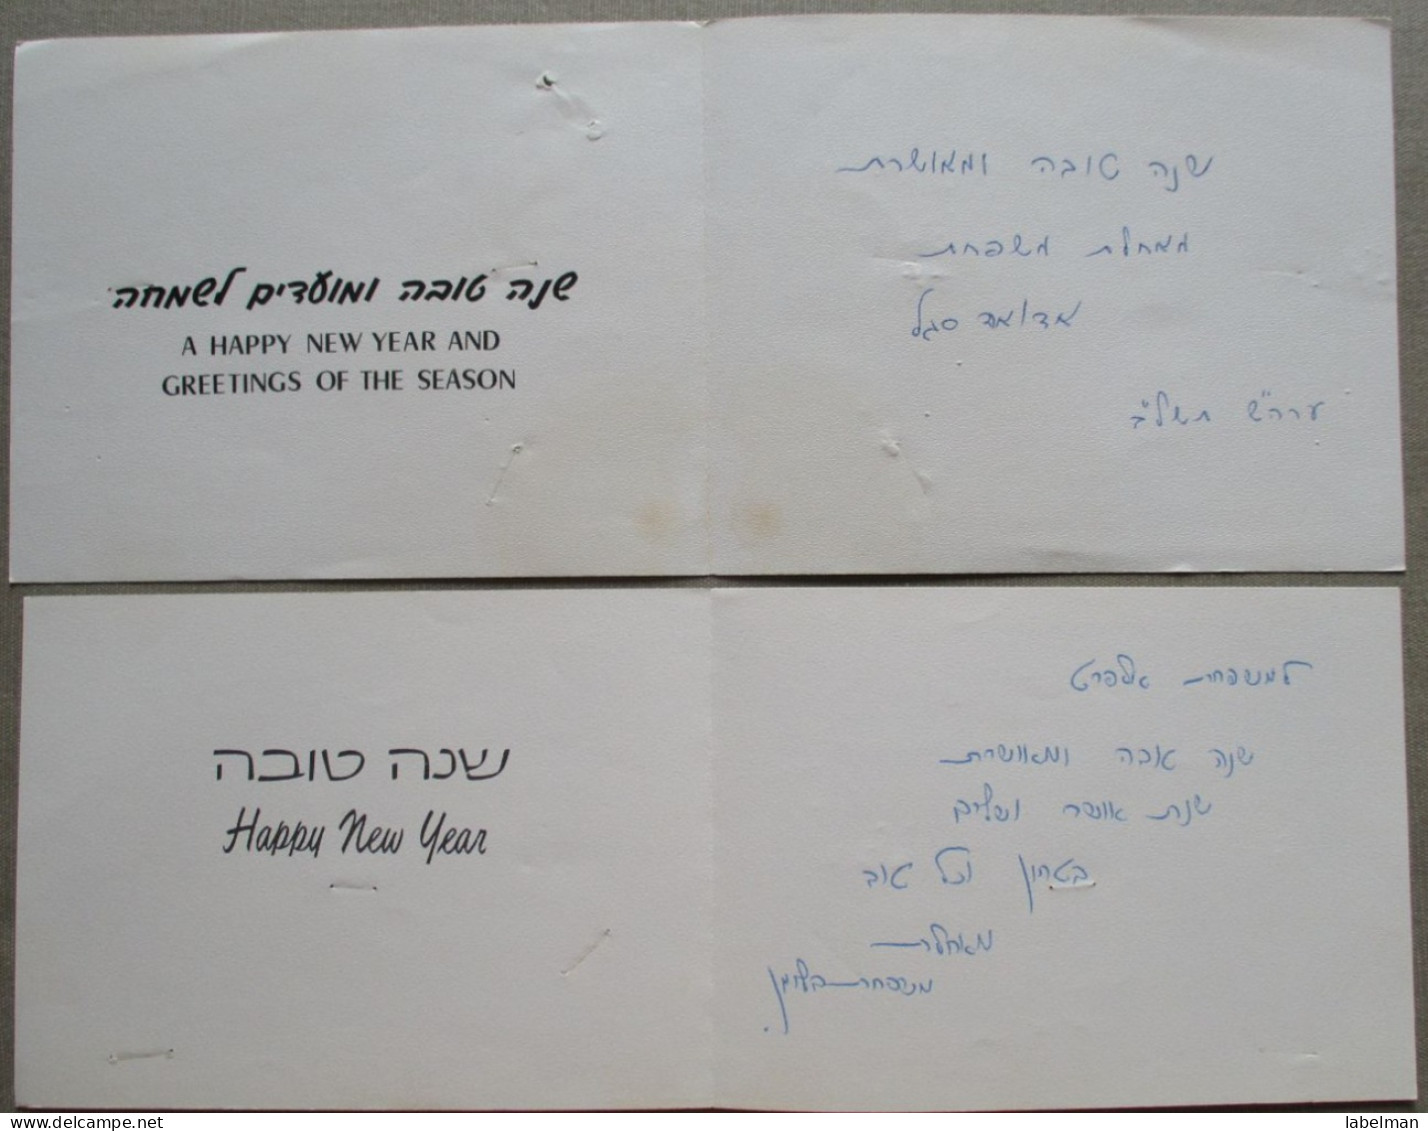 שנה טובה ומועדים לשמחה
A HAPPY NEW YEAR AND
GREETINGS OF THE SEASON
שנה טובה ומאושרת
מאחלת משפחת
אדואר סגל
ערה"ש תשל"ב
שנה טובה
Happy New Year
למשפחת אלפרט
שנה טובה ומאושרת
שנת אושר ושלום
בטחון וכל טוב
מאחלת
משפחת
labelman